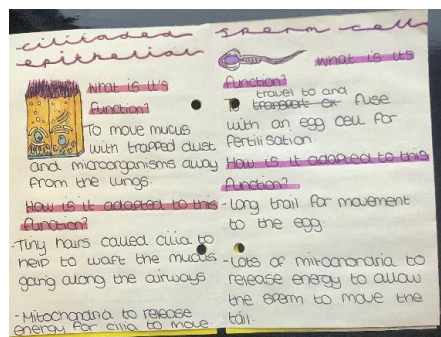 ciliated
epithelial
what is it's
function?
To move mucus
with trapped dust
and microorganisms away
from the lungs.
How is it adapted to this
function?
-Tiny hairs called cilia to
help to waft the mucus
going along the airways.
-Mitochondria to release
energy for cilia to move.
sperm cell
what is its
function?
travel to and
To transport ex fuse
with an egg cell for
fertilisation.
How is it adapted to this
function?
-Long trail for movement
to the egg.
-Lots of mitochondria to
release energy to allow
the sperm to move the
tail.